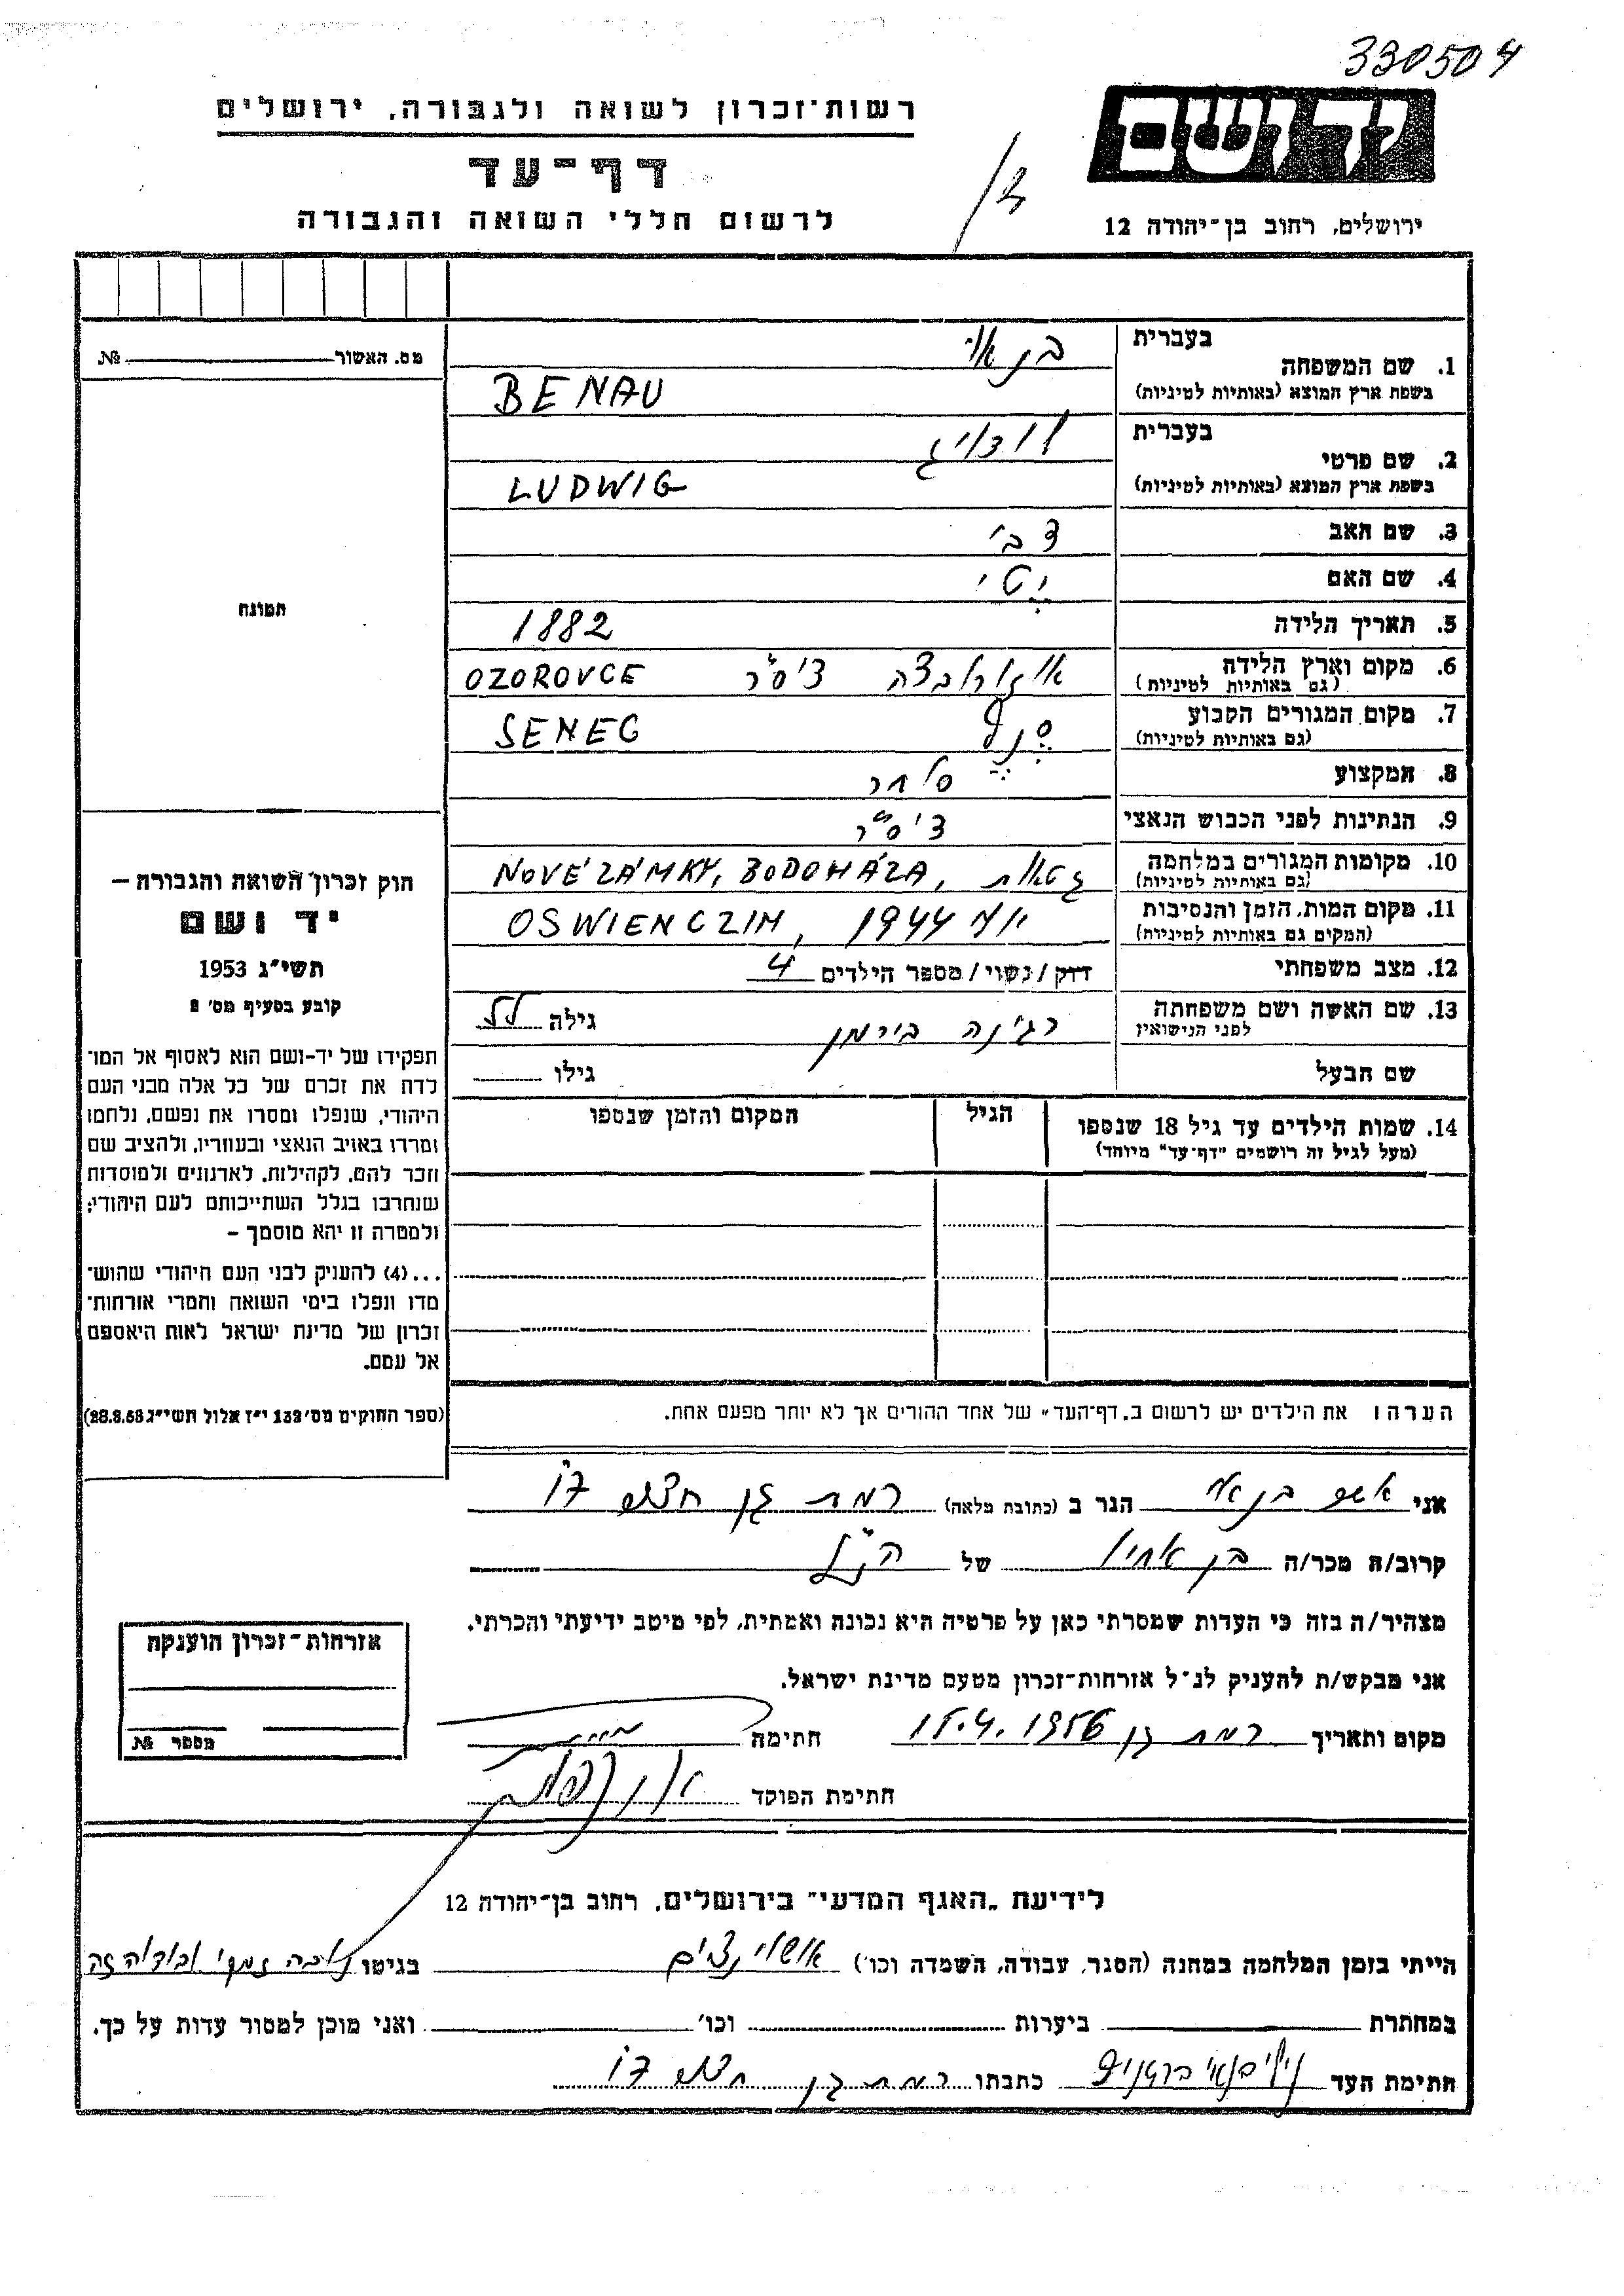 330504
יד ושם
רשות-זכרון לשואה ולגבורה, ירושלים
דף-עד
לרשום חללי השואה והגבורה
ירושלים, רחוב בן-יהודה 12
מס. האשור № 
בעברית
1. שם המשפחה
בשפת ארץ המוצא (באותיות לטיניות)
בן או
BENAU
בעברית
2. שם פרטי
בשפת ארץ המוצא (באותיות לטיניות)
לודויג
LUDWIG
3. שם האב צבי
4. שם האם יטי
5. תאריך הלידה 1882
6. מקום וארץ הלידה
(גם באותיות לטיניות) אוזורובצה צ'ס"ר OZOROVCE
7. מקום המגורים הקבוע
(גם באותיות לטיניות) סנץ SENEC
8. המקצוע סוחר
9. הנתינות לפני הכבוש הנאצי צ'ס"ר
10. מקומות המגורים במלחמה
(גם באותיות לטיניות) גטאות NOVÉ ZÁMKY, BODOHÁZA,
11. מקום המות, הזמן והנסיבות
(המקום גם באותיות לטיניות) יוני 1944 OSWIENCZIM,
12. מצב משפחתי רוק/נשוי/מספר הילדים 4
13. שם האשה ושם משפחתה
לפני הנישואין רגינה בירמן גילה
שם הבעל גילו
14. שמות הילדים עד גיל 18 שנספו
(מעל לגיל זה רושמים "דף-עד" מיוחד)
הגיל
המקום והזמן שנספו
הערה: את הילדים יש לרשום ב„דף-העד" של אחד ההורים אך לא יותר מפעם אחת.
תמונה
חוק זכרון השואה והגבורה –
יד ושם
תשי"ג 1953
קובע בסעיף מס' 2
תפקידו של יד-ושם הוא לאסוף אל המו-
לדת את זכרם של כל אלה מבני העם
היהודי, שנפלו ומסרו את נפשם, נלחמו
ומרדו באויב הנאצי ובעוזריו, ולהציב שם
וזכר להם, לקהילות, לארגונים ולמוסדות
שנחרבו בגלל השתייכותם לעם היהודי;
ולמטרה זו יהא מוסמך –
...(4) להעניק לבני העם היהודי שהוש-
מדו ונפלו בימי השואה והמרי אזרחות-
זכרון של מדינת ישראל לאות היאספם
אל עמם.
(ספר החוקים מס' 132 י"ז אלול תשי"ג 28.8.53)
אני אשר בן או הגר ב (כתובת מלאה) רמת גן
קרוב/ה מכר/ה בן אחיו של הנ"ל
מצהיר/ה בזה כי העדות שמסרתי כאן על פרטיה היא נכונה ואמתית, לפי מיטב ידיעתי והכרתי.
אני מבקש/ת להעניק לנ"ל אזרחות-זכרון מטעם מדינת ישראל.
מקום ותאריך רמת גן 15.4.1956 חתימה
חתימת הפוקד
אזרחות-זכרון הוענקה
מספר №
לידיעת „האגף המדעי" בירושלים, רחוב בן-יהודה 12
הייתי בזמן המלחמה במחנה (הסגר, עבודה, השמדה וכו') אושוינצים בגיטו
במחתרת ביערות וכו' ואני מוכן למסור עדות על כך.
חתימת העד כתבתו רמת גן